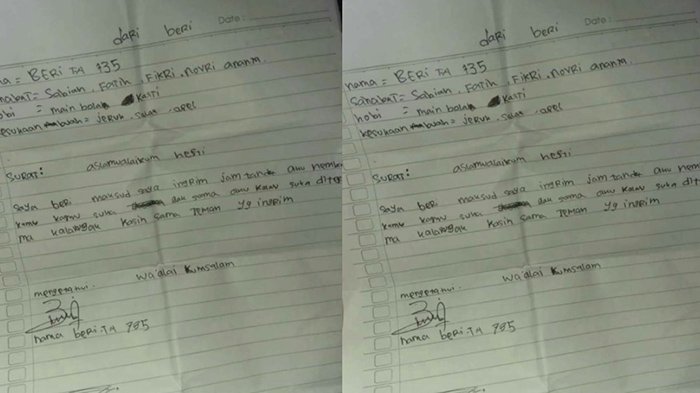 dari beri Date :
ma = BERi TA 135
Sahabat = Sabiah, Fatih, FiKRi, NOVRi ananta
hobi = main bola KASTi
kesukaan buah = jeruk, salak, apel
SURAT : aslamualaikum hesti
saya beri maksud saya ingrim jam tangan
kamu kamu suka dak sama aku kalau suka
ma kalau gak kasih sama TEMAN yg ingrim
wa'alai kumsalam
mengetahui.
nama beri TA 135
dari beri Date :
nama = BERi TA 135
Sahabat = Sabiah, Fatih, FiKRi, NOVRi ananta
hobi = main bola KASTi
kesukaan buah = jeruk, salak, apel
SURAT : aslamualaikum hesti
saya beri maksud saya ingrim jam tangan
kamu kamu suka dak sama aku kalau suka
ma kalau gak kasih sama TEMAN yg ingrim
wa'alai kumsalam
mengetahui.
nama beri TA 135